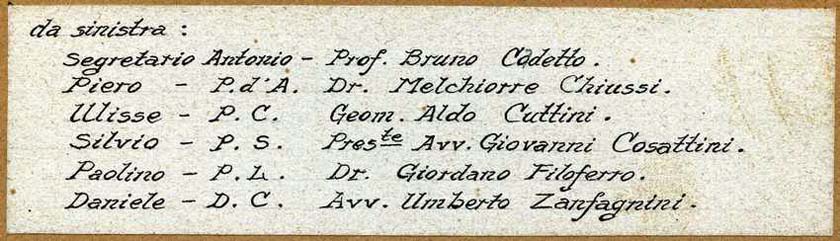 da sinistra :
Segretario Antonio - Prof. Bruno Cadetto.
Piero - P.d'A. Dr. Melchiorre Chiussi.
Ulisse - P. C. Geom. Aldo Cuttini.
Silvio - P. S. Preste Avv. Giovanni Cosattini.
Paolino - P. L. Dr. Giordano Filoferro.
Daniele - D. C. Avv. Umberto Zanfagnini.